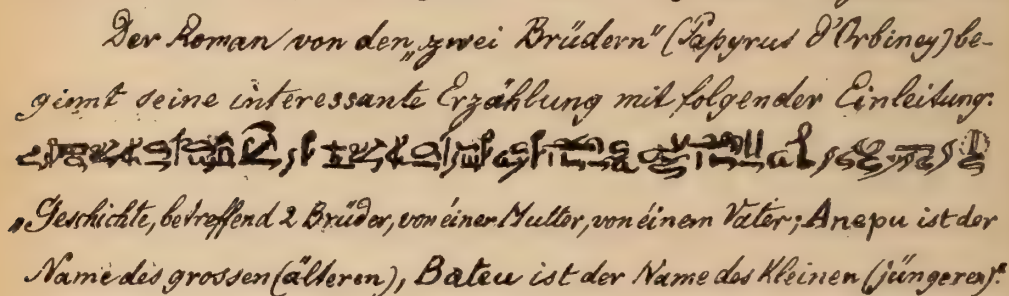 Der Roman von den „zwei Brüdern“ (Papyrus d'Orbiney) be-
ginnt seine interessante Erzählung mit folgender Einleitung:
„Geschichte, betreffend 2 Brüder, von einer Mutter, von einem Vater; Anepu ist der
Name des grossen (älteren), Bateu ist der Name des Kleinen (jüngeren)“